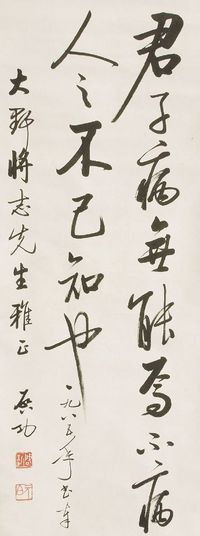 君子病無能焉不病
人之不己知也
一九八三年書奉
大野將志先生雅正
啟功